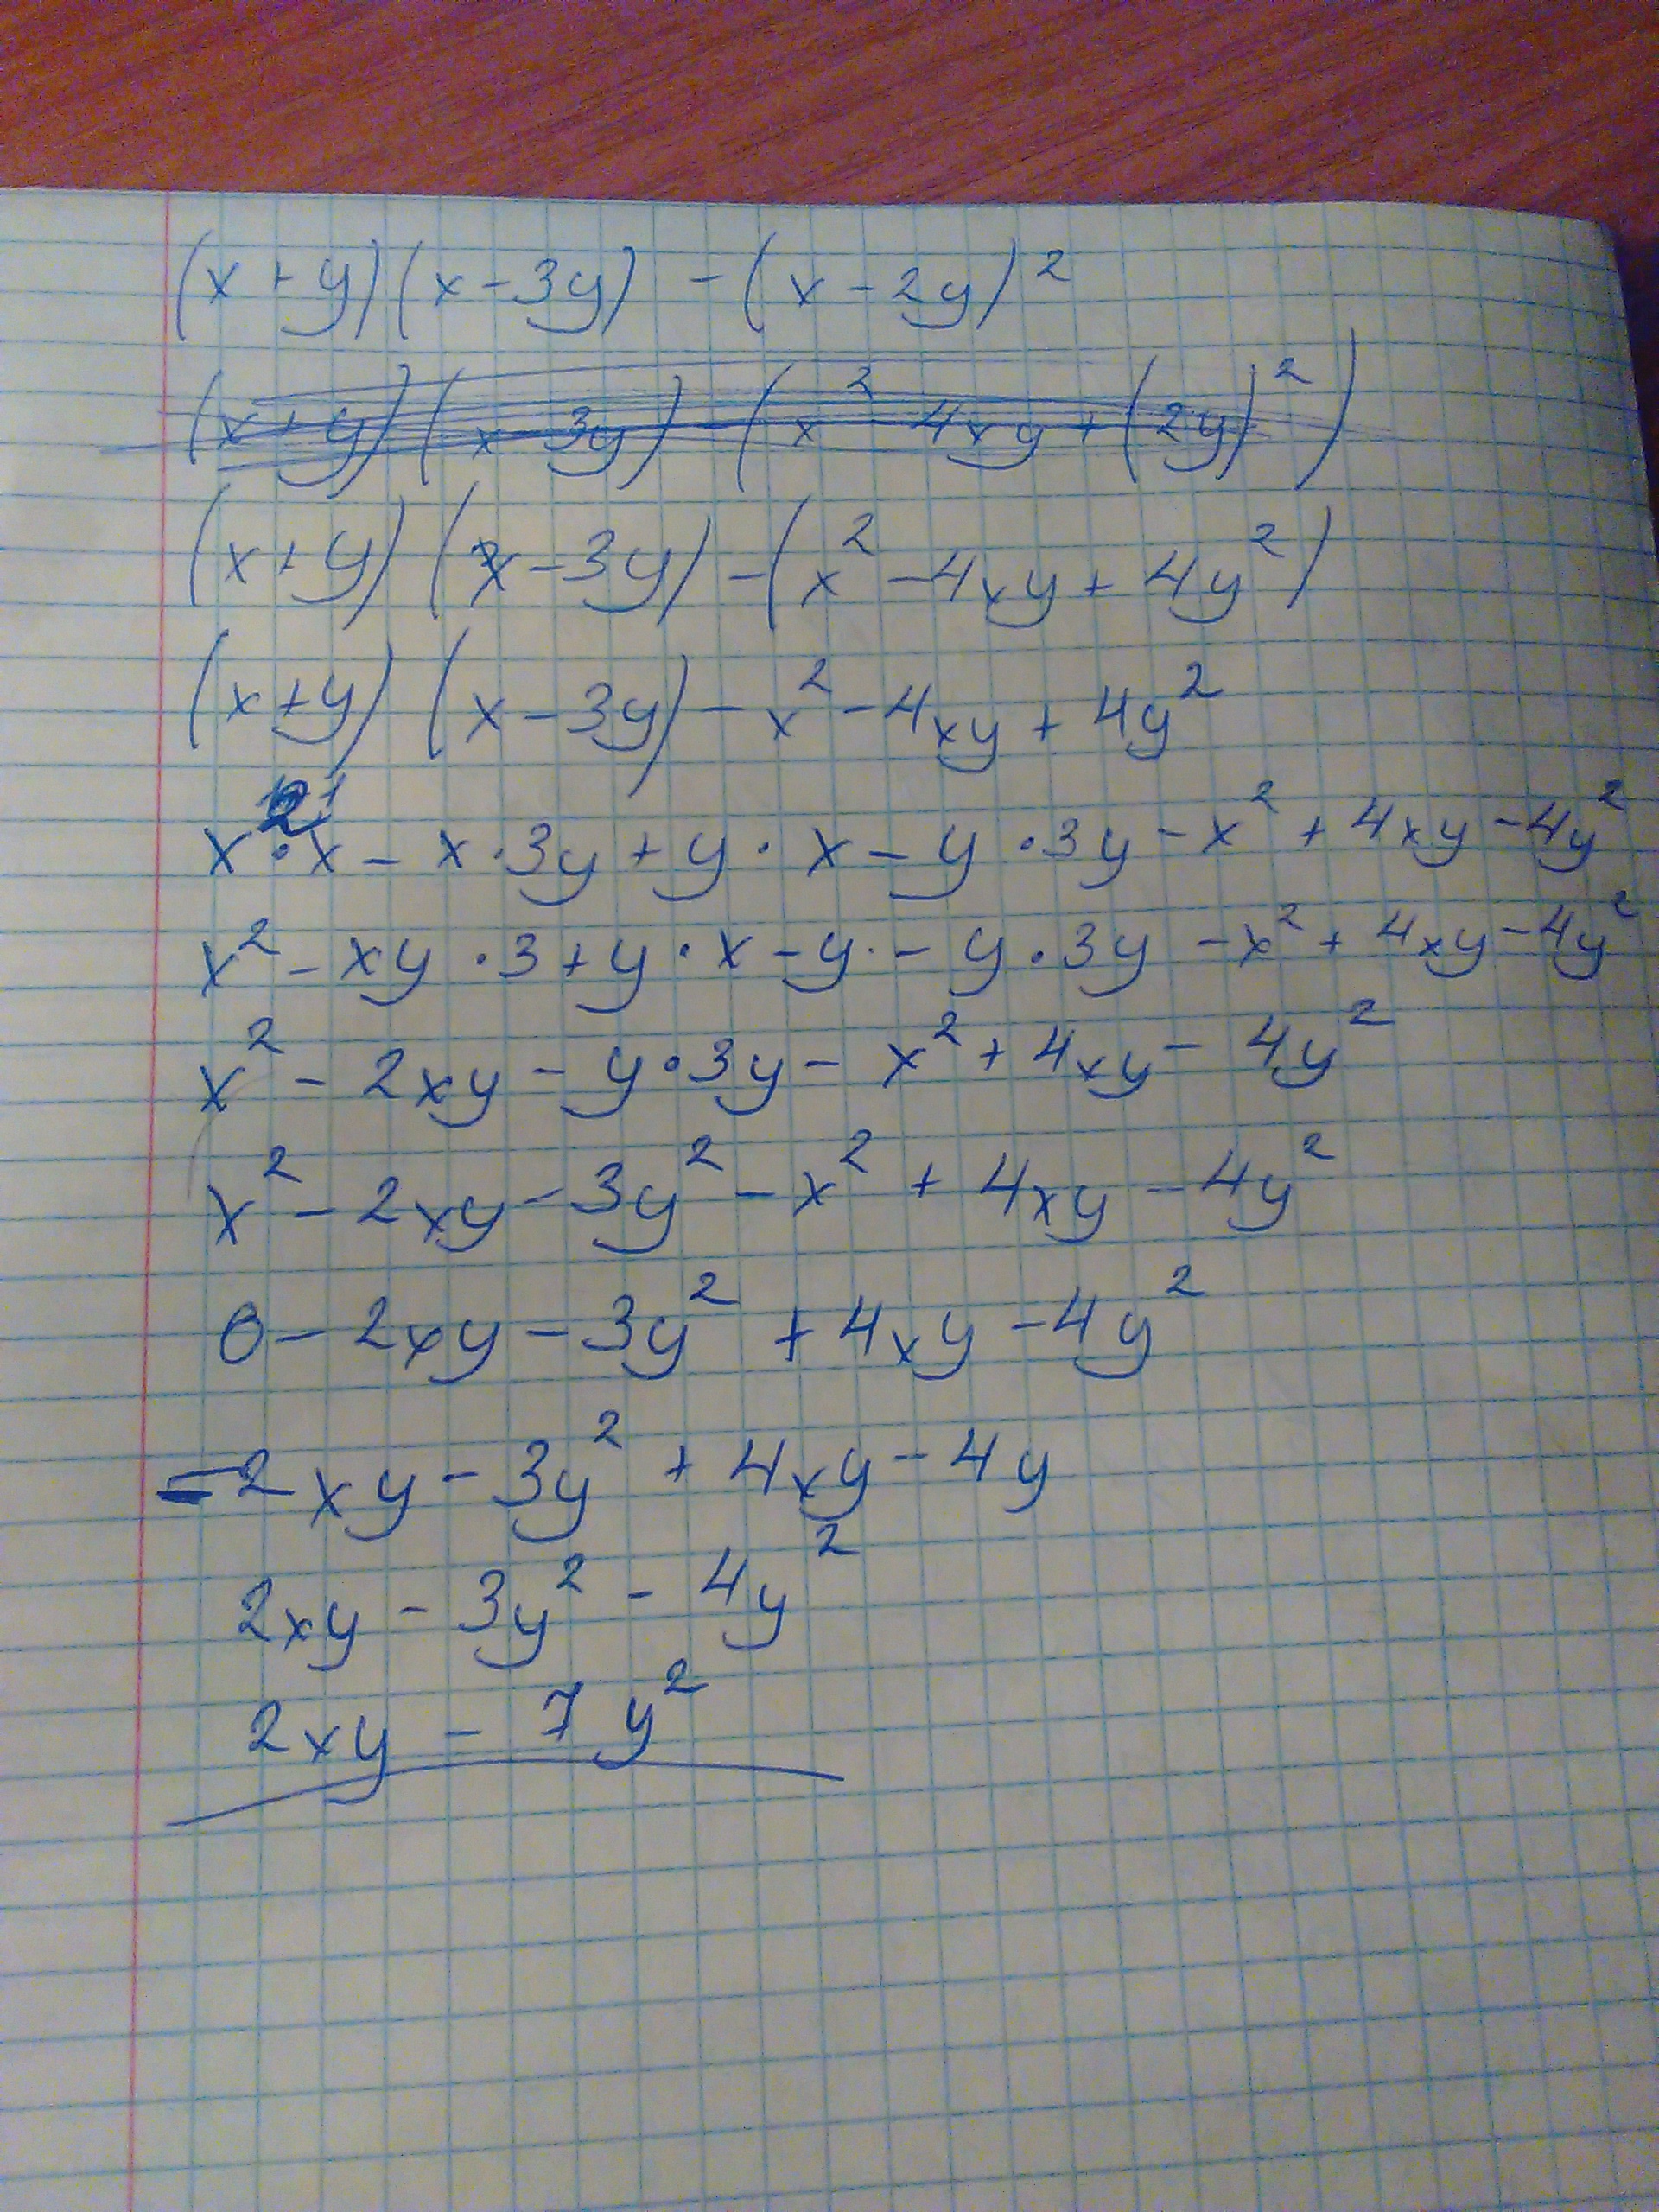 (x+y)(x-3y) -(x-2y)²
(x+y)(x-3y)-(x²-4xy+(2y)²)
(x+y)(x-3y)-(x²-4xy+4y²)
(x+y)(x-3y)-x²-4xy+4y²
x·x-x·3y+y·x-y·3y-x²+4xy-4y²
x²-xy·3+y·x-y·-y·3y-x²+4xy-4y²
x²-2xy-y·3y-x²+4xy-4y²
x²-2xy-3y²-x²+4xy-4y²
0-2xy-3y²+4xy-4y²
-2xy-3y²+4xy-4y
2xy-3y²-4y²
2xy-7y²